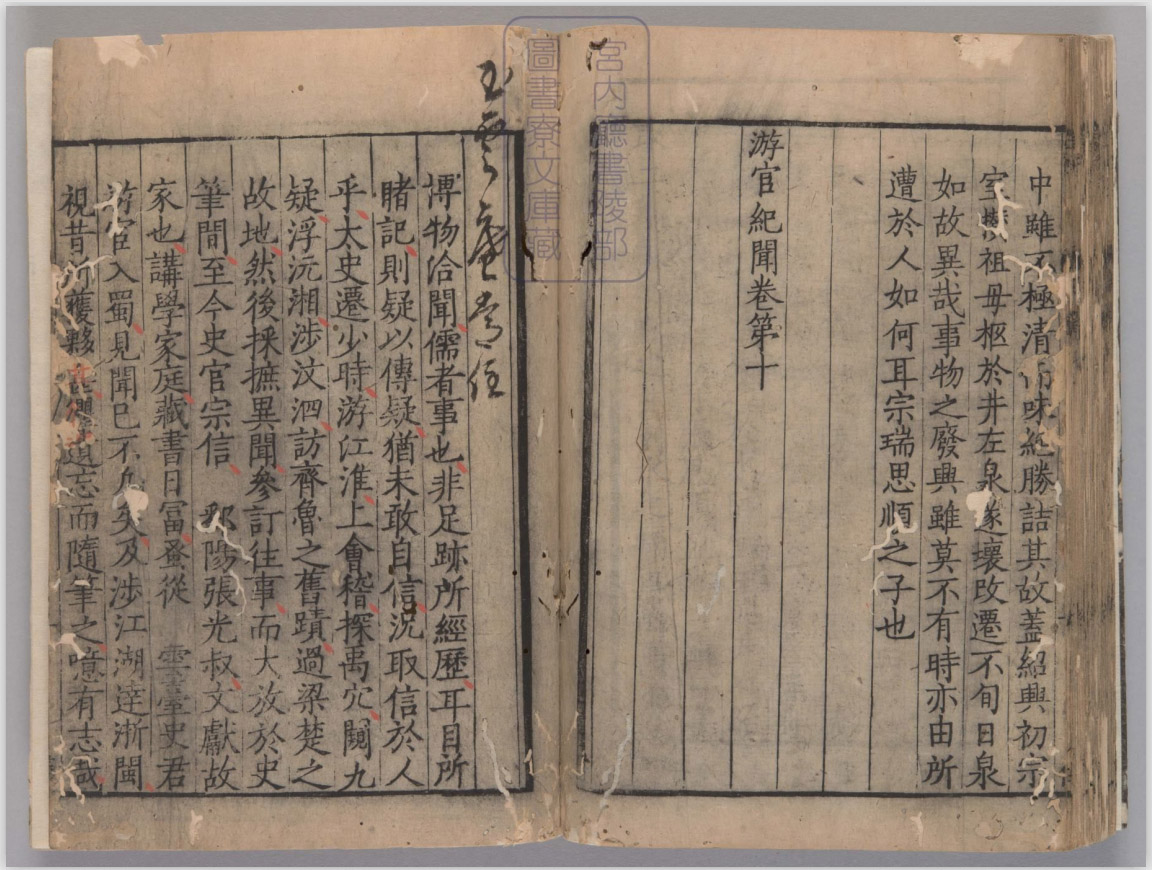 中雖不極清而味絶勝詰其故蓋紹興初宗
室攢祖母柩於井左泉遂壞改遷不旬日泉
如故異哉事物之廢興雖莫不有時亦由所
遭於人如何耳宗瑞思順之子也
游宦紀聞卷第十
宮內廳書陵部
圖書寮文庫藏
博物洽聞儒者事也非足跡所經歷耳目所
睹記則疑以傳疑猶未敢自信況取信於人
乎太史遷少時游江淮上會稽探禹穴闚九
疑浮沅湘涉汶泗訪齊魯之舊蹟過梁楚之
故地然後採摭異聞參訂往事而大放於史
筆間至今史官宗信 鄱陽張光叔文獻故
家也講學家庭藏書日富蚤從 雲臺史君
游宦入蜀見聞已不凡矣及涉江湖達浙閩
視昔所獲夥 遺忘而隨筆之噫有志哉